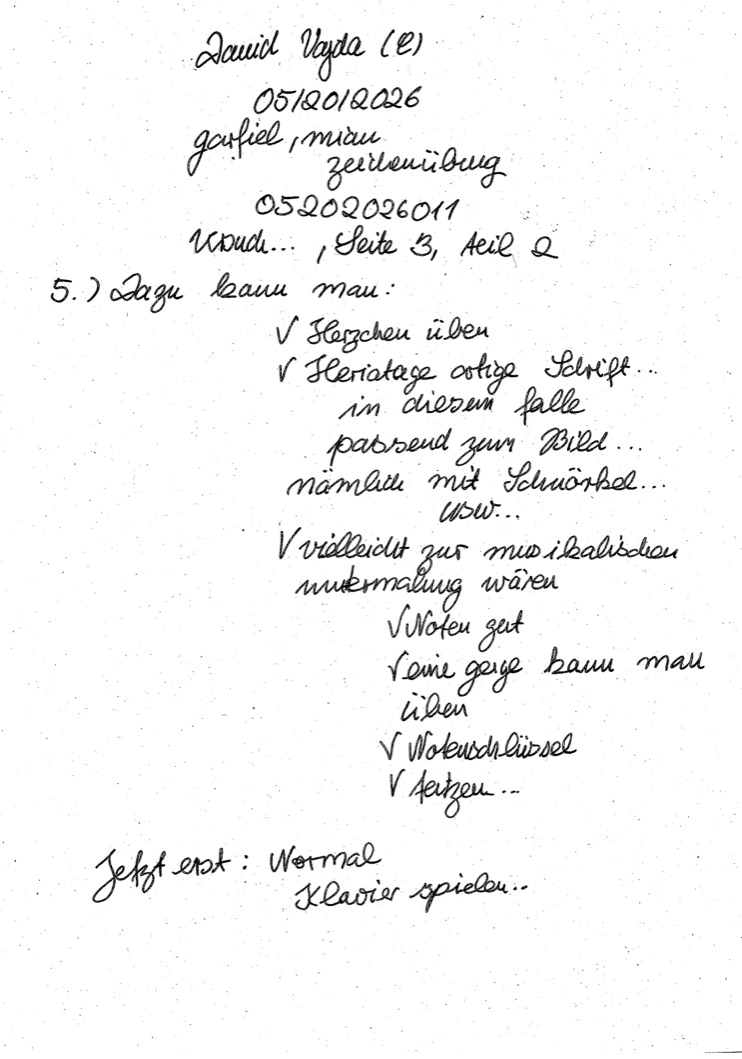 David Vajda (C)
05/20/2026
garfiel, miau
zeichenübung
05202026011
, Seite 3, Teil 2
5.) Dazu kann man:
√ Herzchen üben
√ Heriatage artige Schrift...
in diesem falle
passend zum Bild...
nämlich mit Schnörkel...
usw...
√ vielleicht zur musikalischen
untermalung wären
√ Noten gut
√ eine geige kann man
üben
√ Notenschlüssel
√
Jetzt erst: Normal
Klavier spielen..